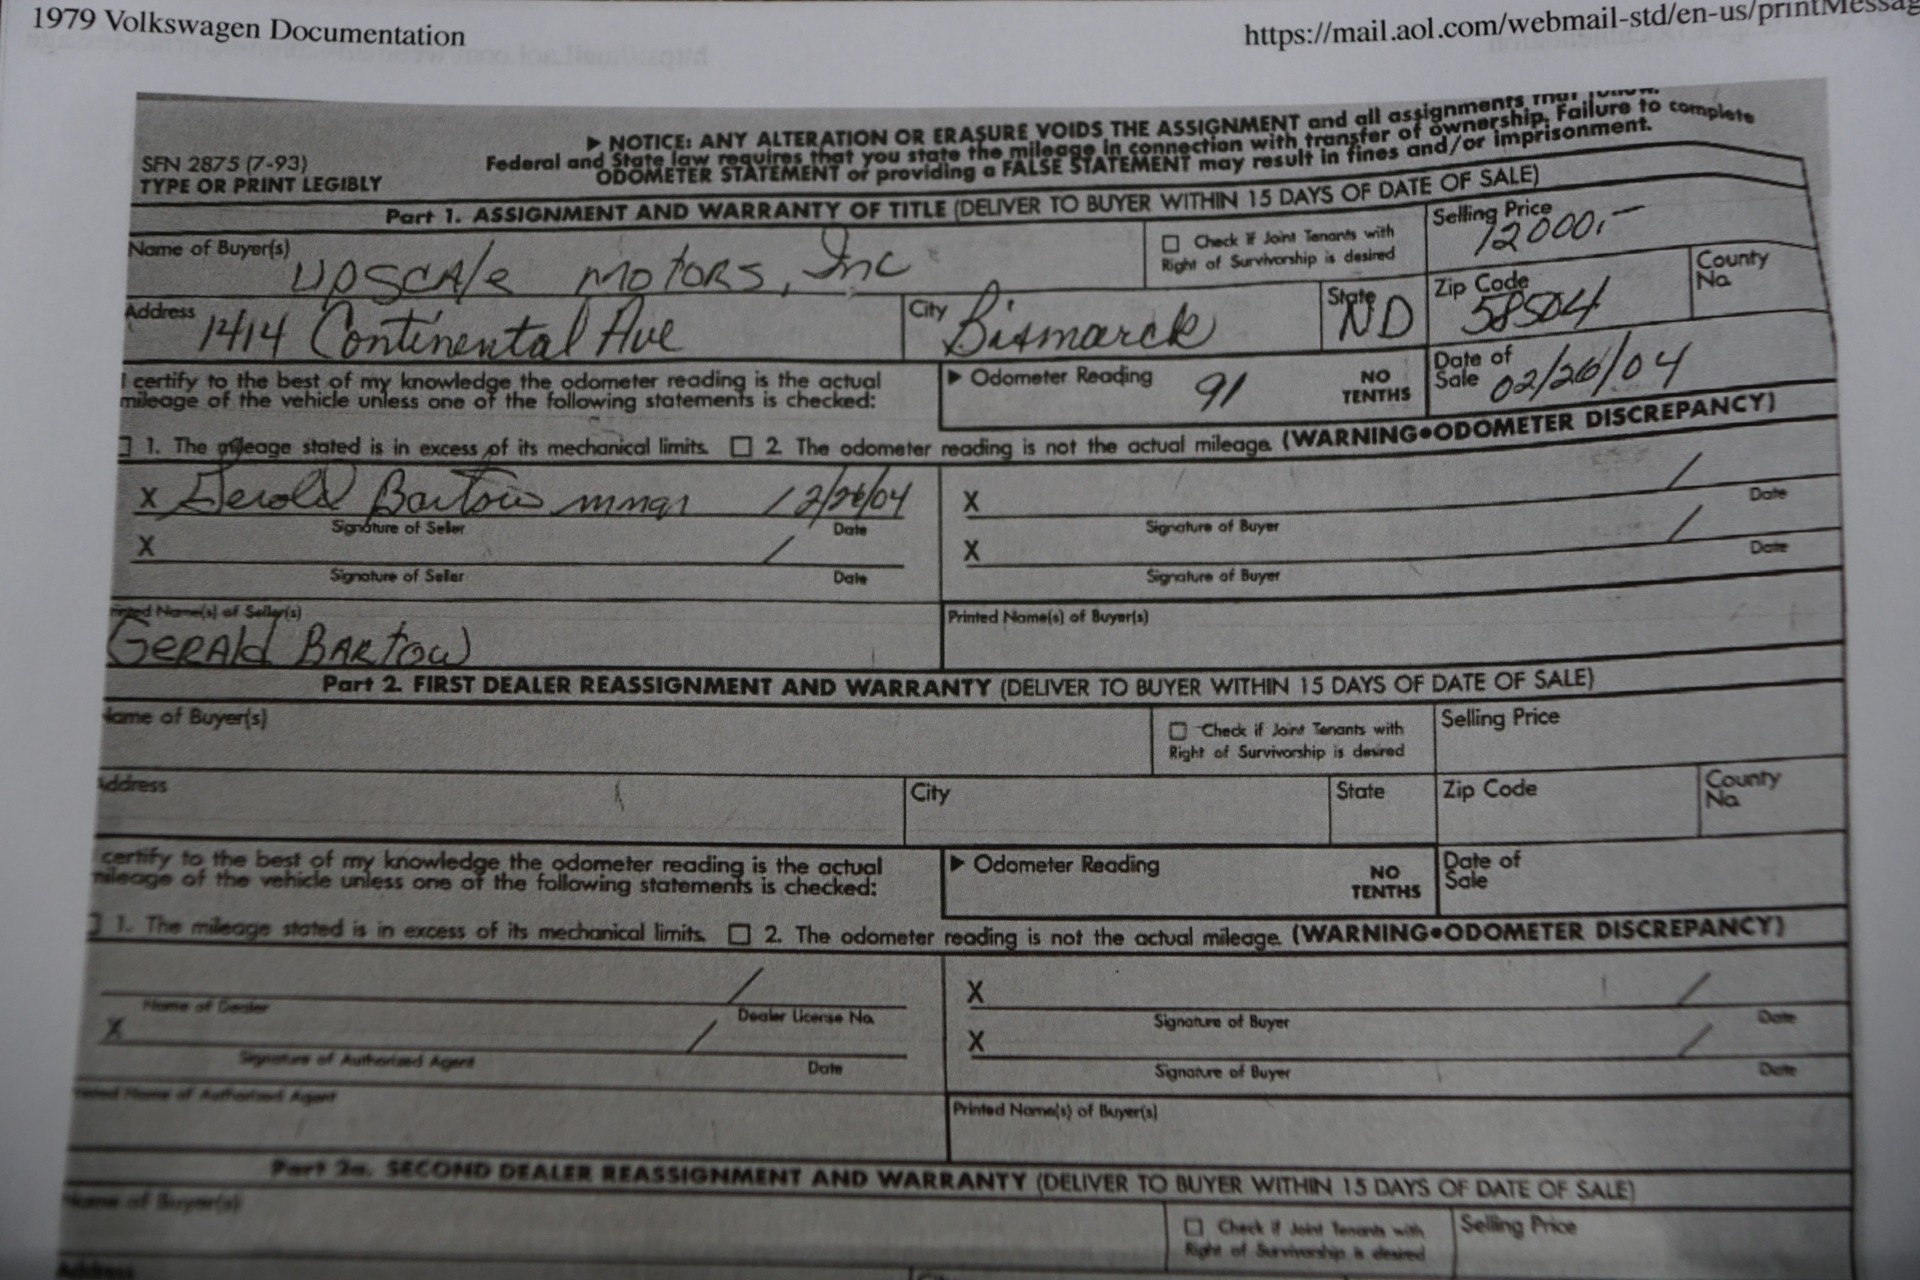 1979 Volkswagen Documentation
https://mail.aol.com/webmail-std/en-us/printMessag
▶ NOTICE: ANY ALTERATION OR ERASURE VOIDS THE ASSIGNMENT and all assignments that follow.
Federal and State law requires that you state the mileage in connection with transfer of ownership. Failure to complete
ODOMETER STATEMENT or providing a FALSE STATEMENT may result in fines and/or imprisonment.
SFN 2875 (7-93)
TYPE OR PRINT LEGIBLY
Part 1. ASSIGNMENT AND WARRANTY OF TITLE (DELIVER TO BUYER WITHIN 15 DAYS OF DATE OF SALE)
Name of Buyer(s) UPSCAle MOTORS, Inc
Check if Joint Tenants with
Right of Survivorship is desired
Selling Price 12000,-
Address 1414 Continental Ave
City Bismarck
State ND
Zip Code 58504
County
No.
I certify to the best of my knowledge the odometer reading is the actual
mileage of the vehicle unless one of the following statements is checked:
▶ Odometer Reading 91
NO
TENTHS
Date of
Sale 02/26/04
1. The mileage stated is in excess of its mechanical limits. 2. The odometer reading is not the actual mileage. (WARNING•ODOMETER DISCREPANCY)
X Gerald Bartow mngr / 2/26/04
Signature of Seller Date
X /
Signature of Seller Date
X /
Signature of Buyer Date
X /
Signature of Buyer Date
Printed Name(s) of Seller(s)
GERAld BARtow
Printed Name(s) of Buyer(s)
Part 2. FIRST DEALER REASSIGNMENT AND WARRANTY (DELIVER TO BUYER WITHIN 15 DAYS OF DATE OF SALE)
Name of Buyer(s)
Check if Joint Tenants with
Right of Survivorship is desired
Selling Price
Address
City
State
Zip Code
County
No.
certify to the best of my knowledge the odometer reading is the actual
mileage of the vehicle unless one of the following statements is checked:
▶ Odometer Reading
NO
TENTHS
Date of
Sale
1. The mileage stated is in excess of its mechanical limits. 2. The odometer reading is not the actual mileage. (WARNING•ODOMETER DISCREPANCY)
/
Name of Dealer Dealer License No.
X /
Signature of Authorized Agent Date
X /
Signature of Buyer Date
X /
Signature of Buyer Date
Printed Name of Authorized Agent
Printed Name(s) of Buyer(s)
Part 2a. SECOND DEALER REASSIGNMENT AND WARRANTY (DELIVER TO BUYER WITHIN 15 DAYS OF DATE OF SALE)
Name of Buyer(s)
Check if Joint Tenants with
Right of Survivorship is desired
Selling Price
Address
City